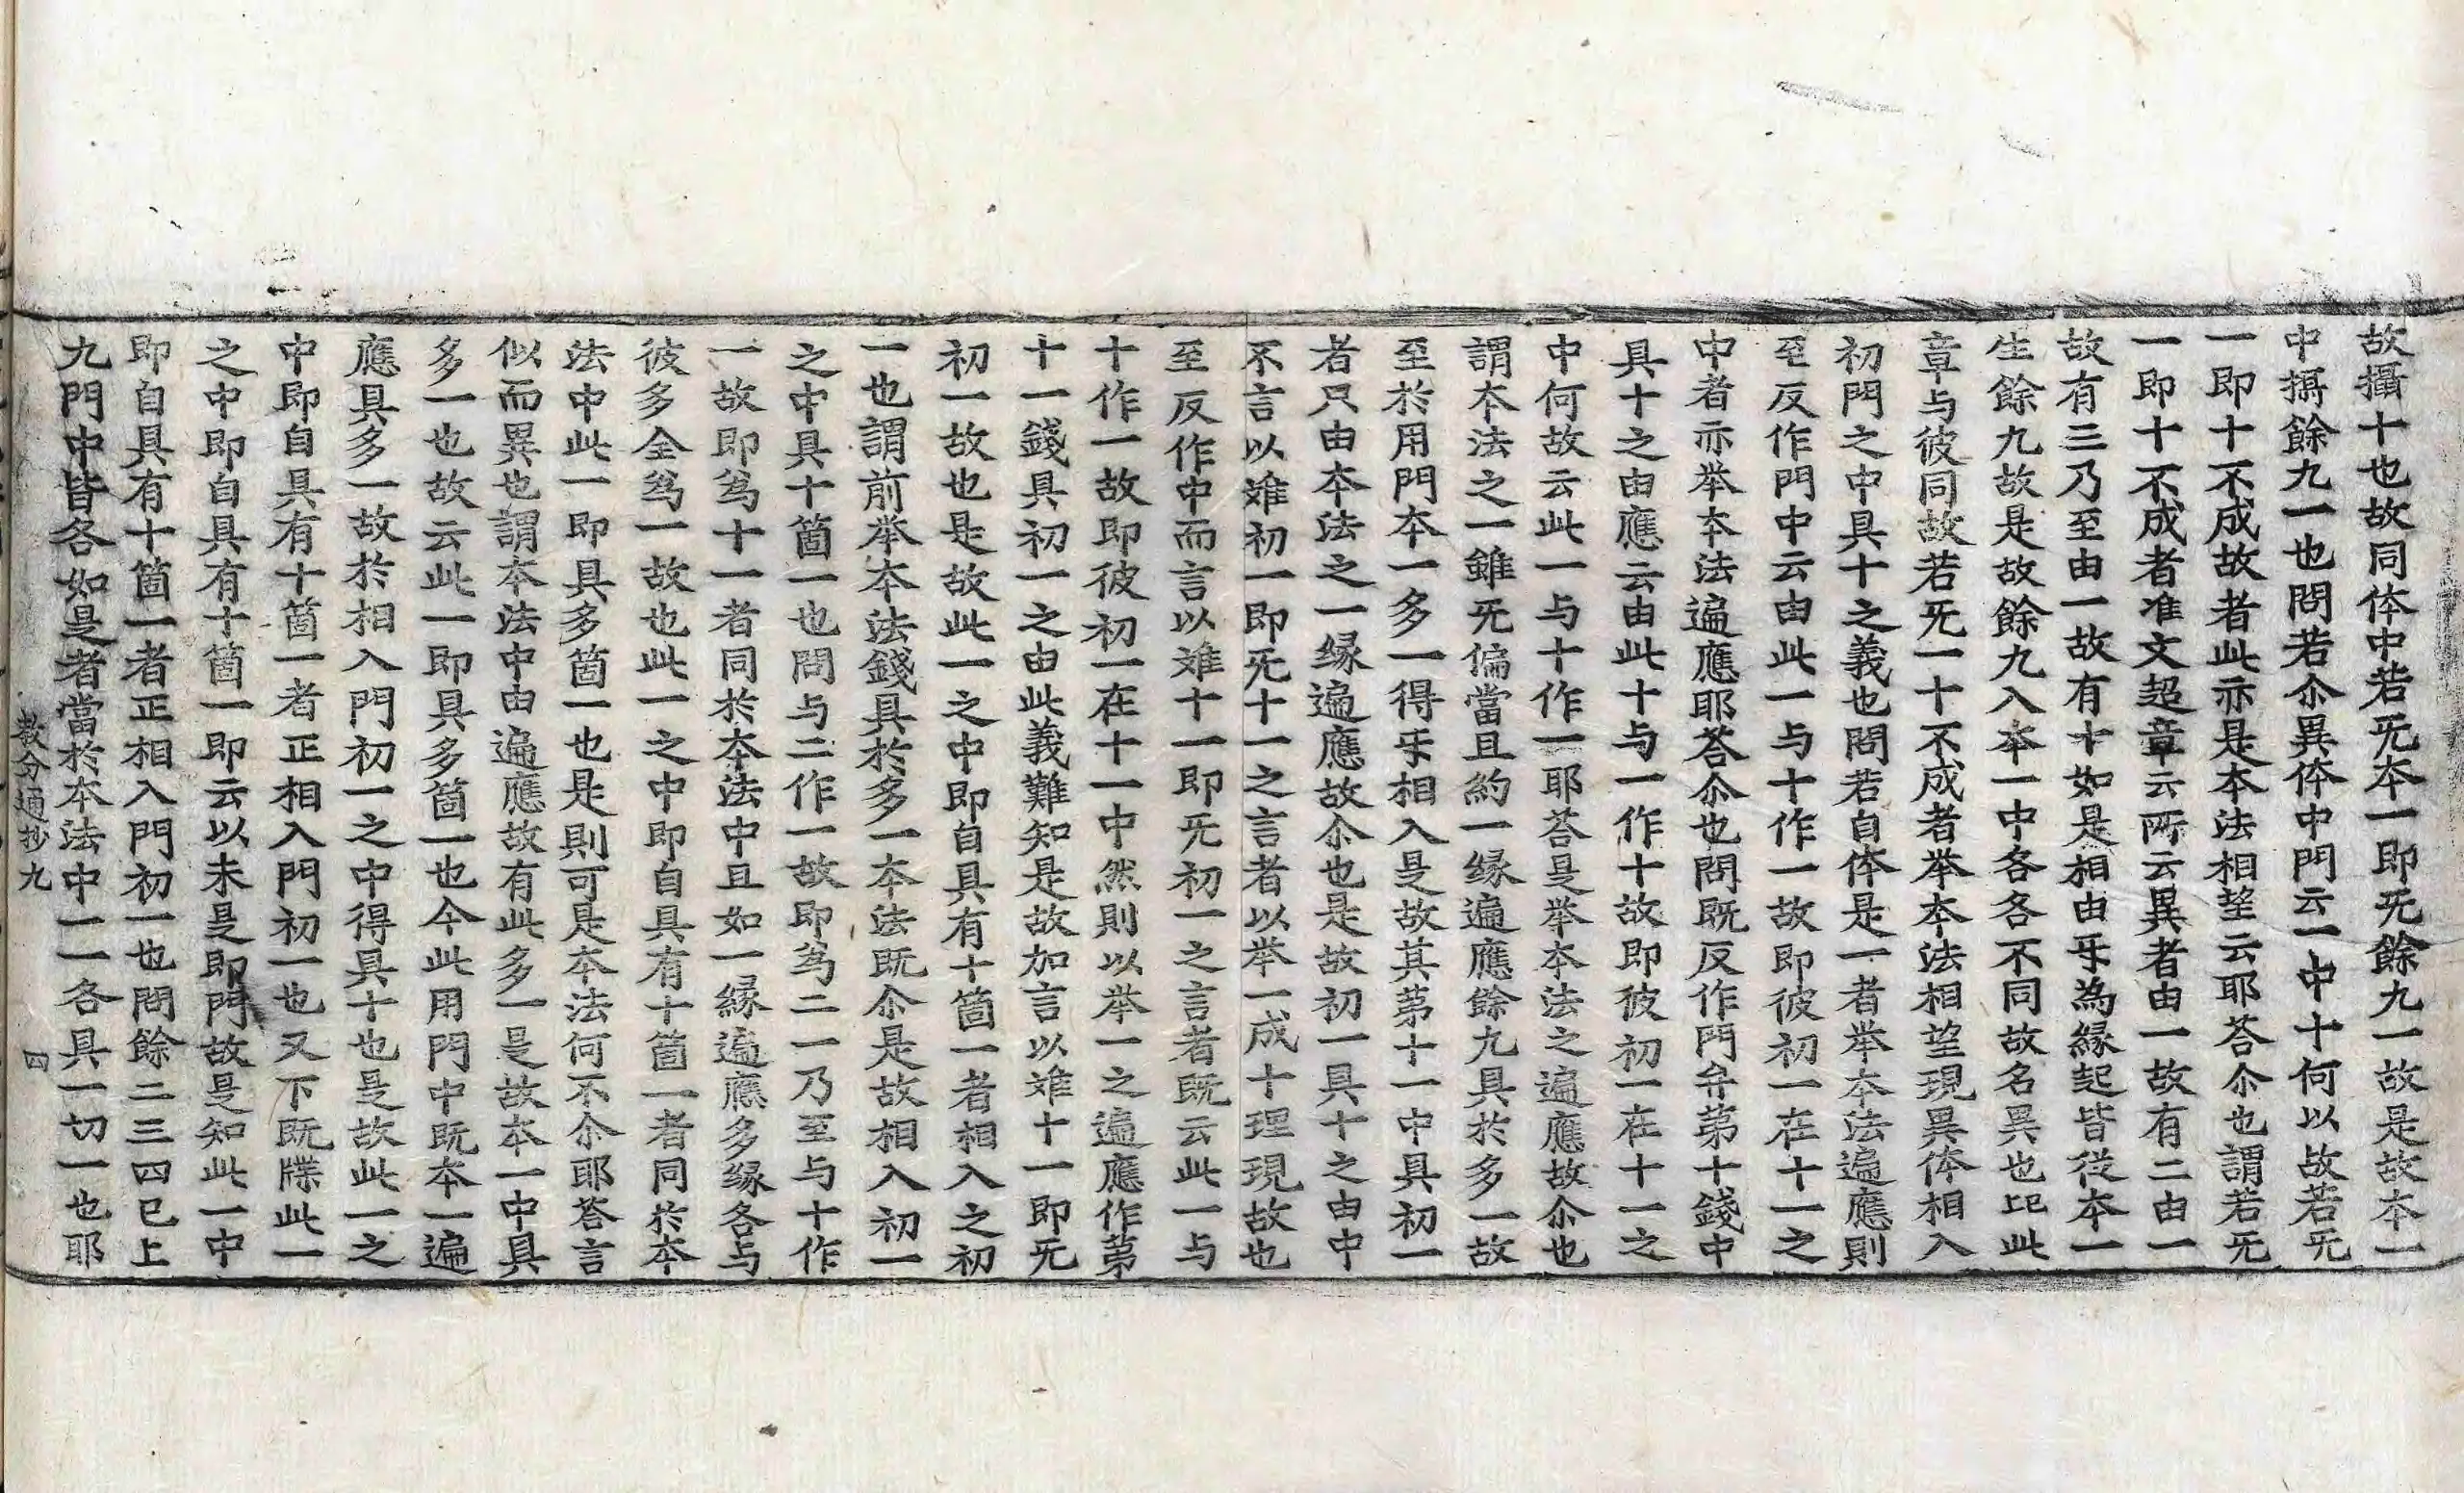 故攝十也故同体中若旡本一即旡餘九一故是故本一
中攝餘九一也問若尒異体中門云一中十何以故若旡
一即十不成故者此亦是本法相望云耶荅尒也謂若旡
一即十不成者准文超章云所云異者由一故有二由一
故有三乃至由一故有十如是相由㸦為緣起皆從本一
生餘九故是故餘九入本一中各各不同故名異也比此
章与彼同故若旡一十不成者举本法相望現異体相入
初門之中具十之義也問若自体是一者举本法遍應則
至反作門中云由此一与十作一故即彼初一在十一之
中者亦举本法遍應耶荅尒也問既反作門弁第十錢中
具十之由應云由此十与一作十故即彼初一在十一之
中何故云此一与十作一耶荅是举本法之遍應故尒也
謂本法之一雖旡偏當且約一緣遍應餘九具於多一故
至於用門本一多一得㸦相入是故其苐十一中具初一
者只由本法之一緣遍應故尒也是故初一具十之由中
不言以难初一即旡十一之言者以举一成十理現故也
至反作中而言以难十一即旡初一之言者既云此一与
十作一故即彼初一在十一中然則以举一之遍應作苐
十一錢具初一之由此義難知是故加言以难十一即旡
初一故也是故此一之中即自具有十箇一者相入之初
一也謂前举本法錢具於多一本法既尒是故相入初一
之中具十箇一也問与二作一故即爲二一乃至与十作
一故即爲十一者同於本法中且如一緣遍應多緣各与
彼多全爲一故也此一之中即自具有十箇一者同於本
法中此一即具多箇一也是則可是本法何不尒耶荅言
似而異也謂本法中由遍應故有此多一是故本一中具
多一也故云此一即具多箇一也今此用門中既本一遍
應具多一故於相入門初一之中得具十也是故此一之
中即自具有十箇一者正相入門初一也又下既牒此一
之中即自具有十箇一即云以未是即門故是知此一中
即自具有十箇一者正相入門初一也問餘二三四已上
九門中皆各如是者當於本法中一一各具一切一也耶
教分通抄九 四